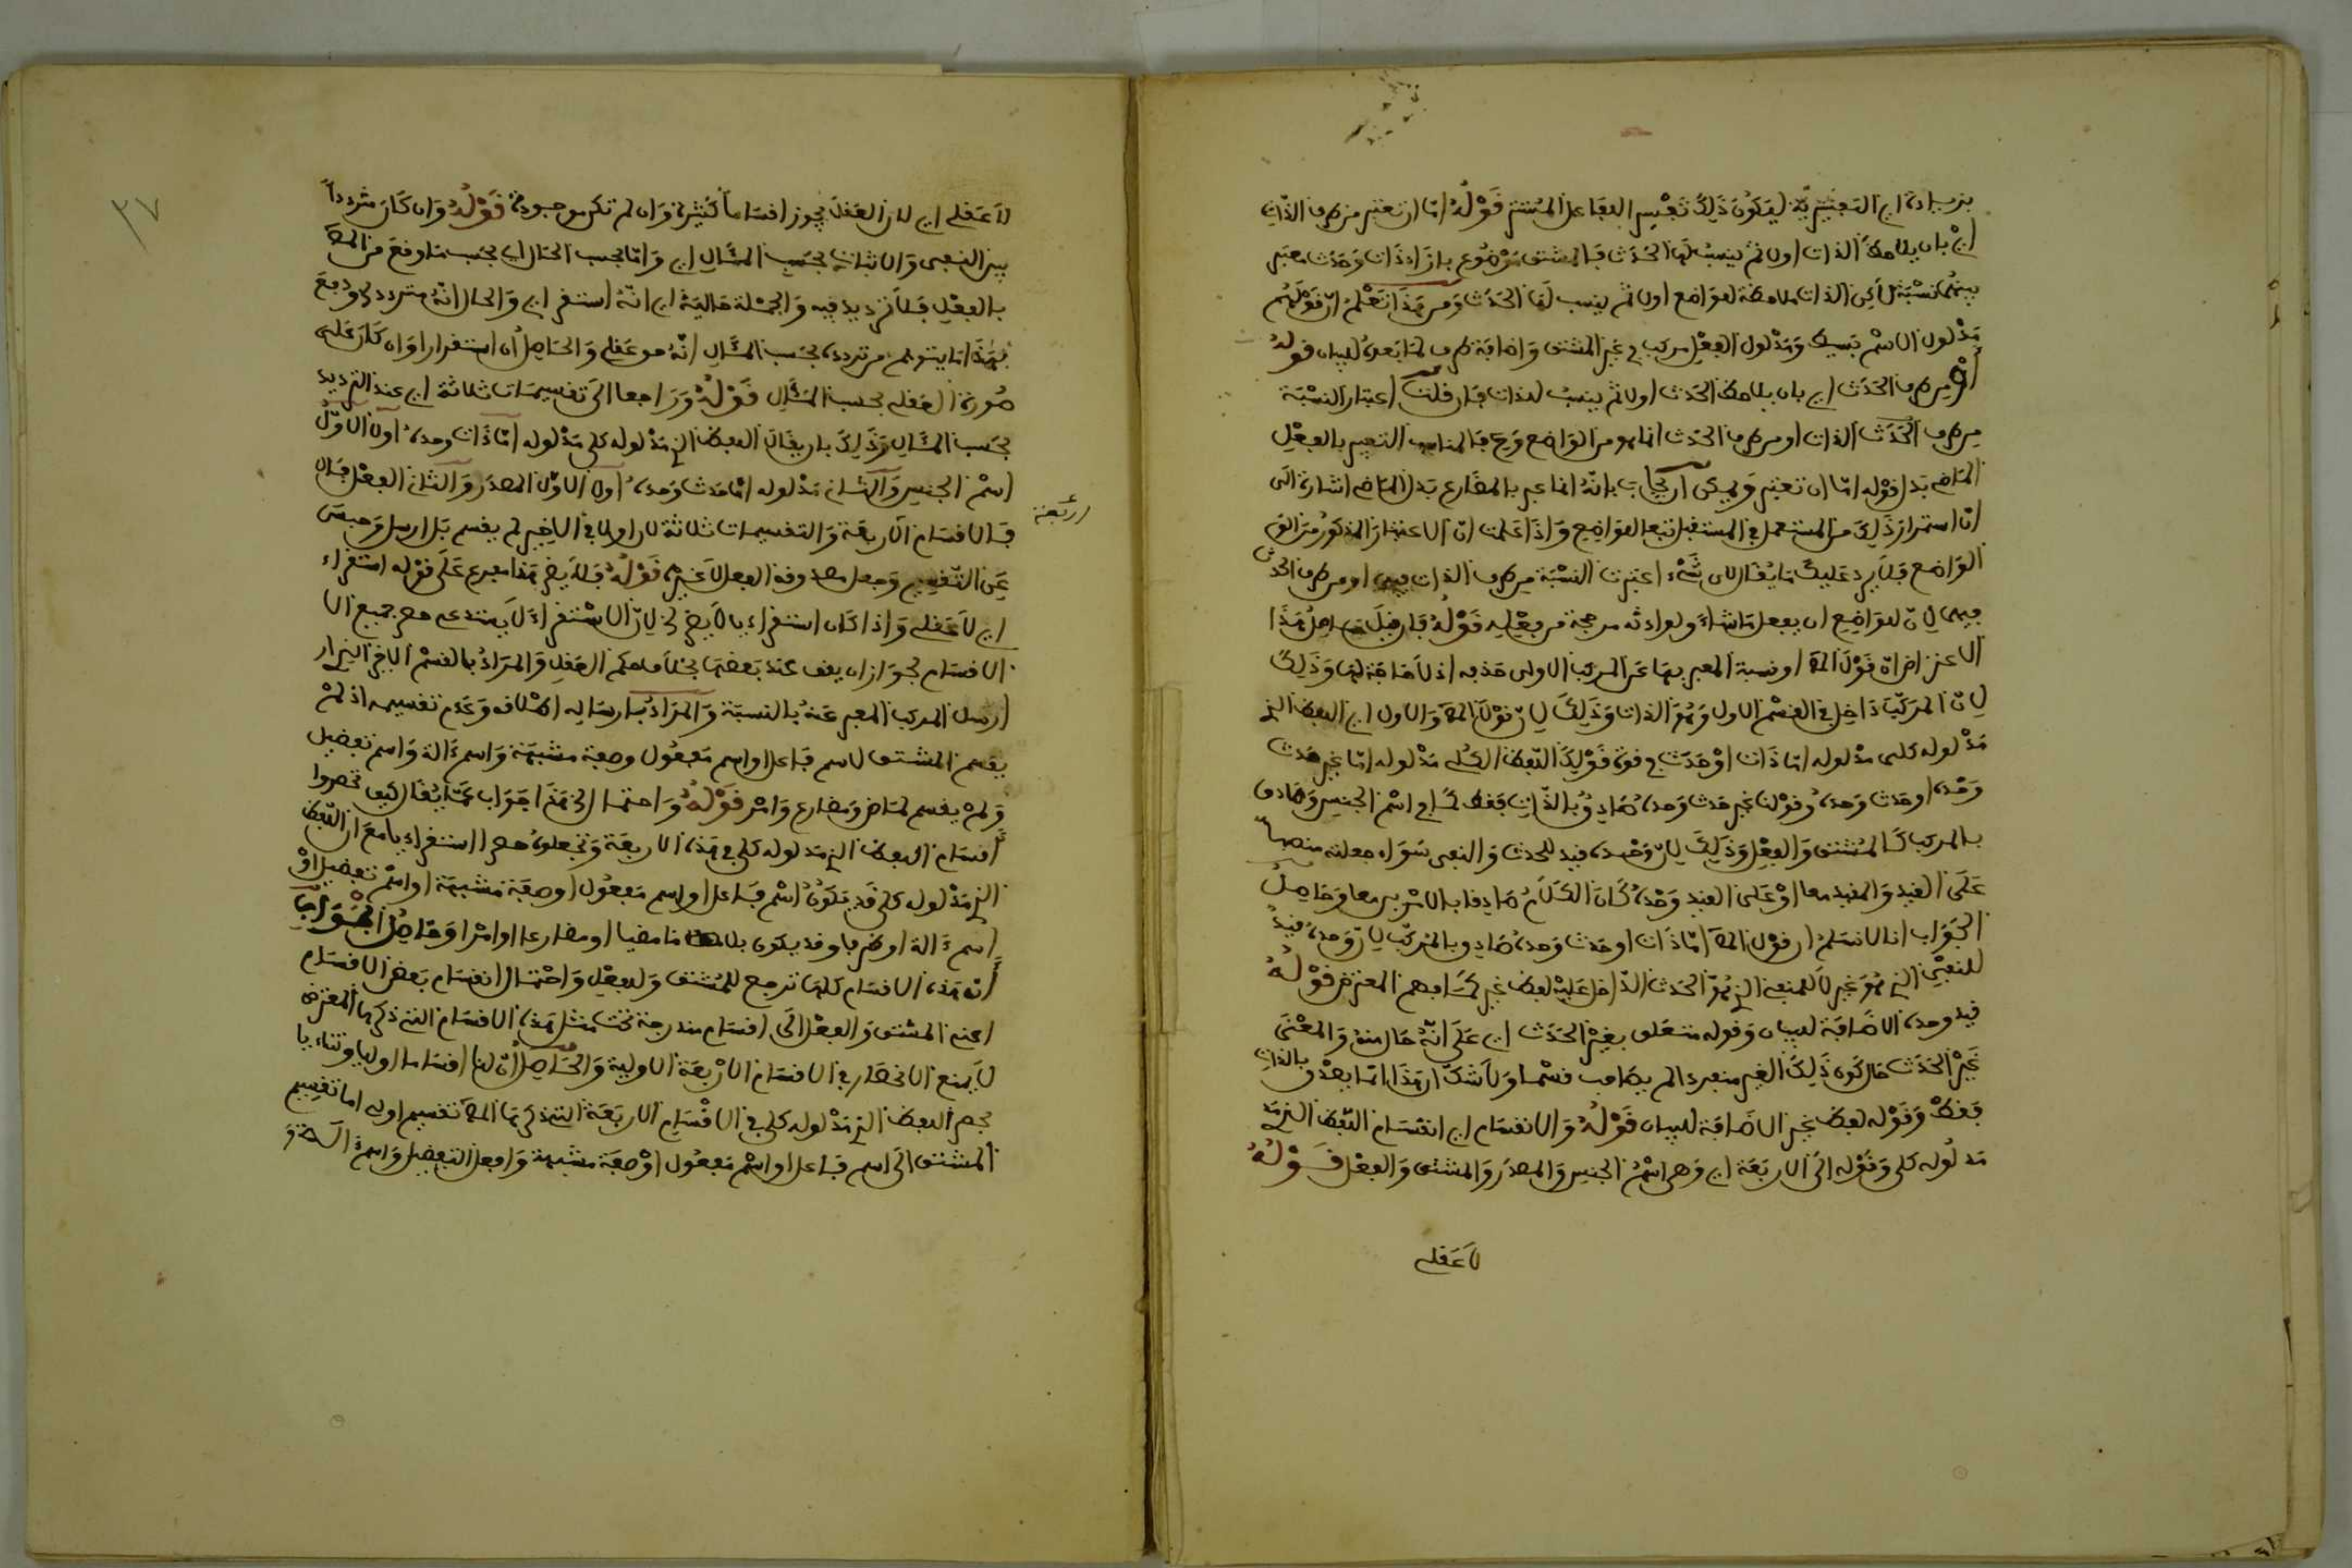 اي بان يلاحظ الذات اولا ثم ينسب لها الحدث فالمشتق موضوع بازاء ذات وحدث معتبر
بينهما نسبة لاكن الذات ملاحظة للواضع اولا ثم ينسب لها الحدث ومن هذا تعلم ان قولهم
مدلول الاسم بسيط ومدلول الفعل مركب في غير المشتق واضافة طرف لما بعده للبيان قوله
او من طرف الحدث اي بان يلاحظ الحدث اولا ثم ينسب للذات فان قلت اعتبار النسبة
من طرف الحدث الذات او من طرف الحدث انما هو من الواضع وح فالمناسب التعبير بالفعل
الماضي بدل قوله اما ان تعتبر ويمكن ان يجاب بانه انما عبر بالمضارع بدل الماضي اشارة الى
ان استمرار ذلك من المستعمل في المستقبل تبعا للواضع واذا علمت ان الاعتبار المذكور من الق
الواضع فلا يرد عليك ما يقال لاي شيء اعتبرت النسبة من طرف الذات فيه او من طرف الحدث
فيهما لان للواضع ان يفعل ما شاء ولارادته مرجحة من فعليه قوله فان قيل حاصل هذا
الاعتراض ان قول المص او نسبة المعبر بها عن المركب الاولى حذفه اذ لا حاجة لها وذلك
لان المركب داخل في القسم الاول وهو الذات وذلك لان قول المص والاول اي اللفظ الذي
مدلوله كلي مدلوله اما ذات او حدث في قوة قولك اللفظ الكلي مدلوله اما غير حدث
وحده او حدث وحده وقولنا غير حدث وحده صادق بالذات فقط كما في اسم الجنس وصادق
بالمركب كالمشتق والفعل وذلك لان وحده قيد للحدث والنفي سواء جعلته منصبا
على القيد والمقيد معا او على القيد وحده كان الكلام صادقا بالامرين معا وحاصل
الجواب انا لا نسلم ان قول المص اما ذات او حدث وحده صادق بالمركب لان وحده قيد
للنفي الذي هو غير لا للمنفي الذي هو الحدث الداخل عليه لفظ غير كما فهم المعترض قوله
قيد وحده الاضافة للبيان وقوله متعلق بغير الحدث اي على انه حال منه والمعنى
غير الحدث حال كون ذلك الغير منفردا لم يصاحب قسما ولا شك ان هذا انما يصدق بالذات
فقط وقوله لفظ غير الاضافة للبيان قوله والانقسام اي انقسام اللفظ الذي مد
مدلوله كلي وقوله الى الاربعة اي وهي اسم الجنس والمصدر والمشتق والفعل قوله
لا عقلي
٢٧
لا عقلي اي لان العقل يجوز اقساما كثيرة وان لم تكن موجودة قوله وان كان مترددا
بين النفي والاثبات بحسب المثال اي واما بحسب الحال اي بحسب ما وقع من المص
بالفعل فلا ترديد فيه والجملة حالية اي انه استقر اي والحال انه متردد في ودفع
بهذا ما يتوهم من تردده بحسب المثال انه هو عقلي والحاصل انه استقراء وان كان على
صورة العقلي بحسب المثال قوله وراجعا الى تقسيمات ثلاثة اي عند الترديد
بحسب المثال وذلك بان يقال اللفظ الذي مدلوله كلي مدلوله اما ذات وحده اولا الاول
اسم الجنس والثاني مدلوله اما حدث وحده اولا الاول المصدر والثاني الفعل فان
اربعة
فالاقسام الاربعة والتقسيمات ثلاثة لان اولا في الاخير لم يقسم بل ارسل وحبس
عن التقسيم وجعل مصدوقه الفعل لا غير قوله فلا يضر هذا مفرع على قوله استقراء
اي لا عقلي واذا كان استقرائيا لا يضر الخ لان الاستقراء لا يستدعي حصر جميع الا
الاقسام لجواز ان يقف عند بعضها بخلاف حكم العقل والمراد بالقسم الاخير الذي ار
ارسل المركب المعبر عنه بالنسبة والمراد بارساله اطلاقه وعدم تقسيمه اذ لم
يقسم المشتق لاسم فاعل واسم مفعول وصفة مشبهة واسم ءالة واسم تفضيل
ولم يقسم لماض ومضارع وامر قوله واحتما الخ هذا جواب عما يقال كيف تحصروا
اقسام اللفظ الذي مدلوله كلي في هذه الاربعة وتجعلوه حصرا استقرائيا مع ان اللفظ
الذي مدلوله كلي قد يكون اسم فاعل او اسم مفعول او صفة مشبهة او اسم تفضيل او
اسم ءالة او ظرفا وقد يكون ماضيا او مضارعا او امرا وحاصل الجواب
ان هذه الاقسام كلها ترجع للمشتق وللفعل واحتمال انقسام بعض الاقسام
اعني المشتق والفعل الى اقسام مندرجة تحت مثل هذه الاقسام التي ذكرها المعترض
لا يمنع الانحصار في الاقسام الاربعة الاولية والحاصل ان لنا اقساما اوليا وثنائيا
فحصر اللفظ الذي مدلوله كلي في الاقسام الاربعة التي ذكرها المص تقسيم اولي اما تقسيم
المشتق الى اسم فاعل او اسم مفعول او صفة مشبهة وافعل التفضيل واسم ءالة